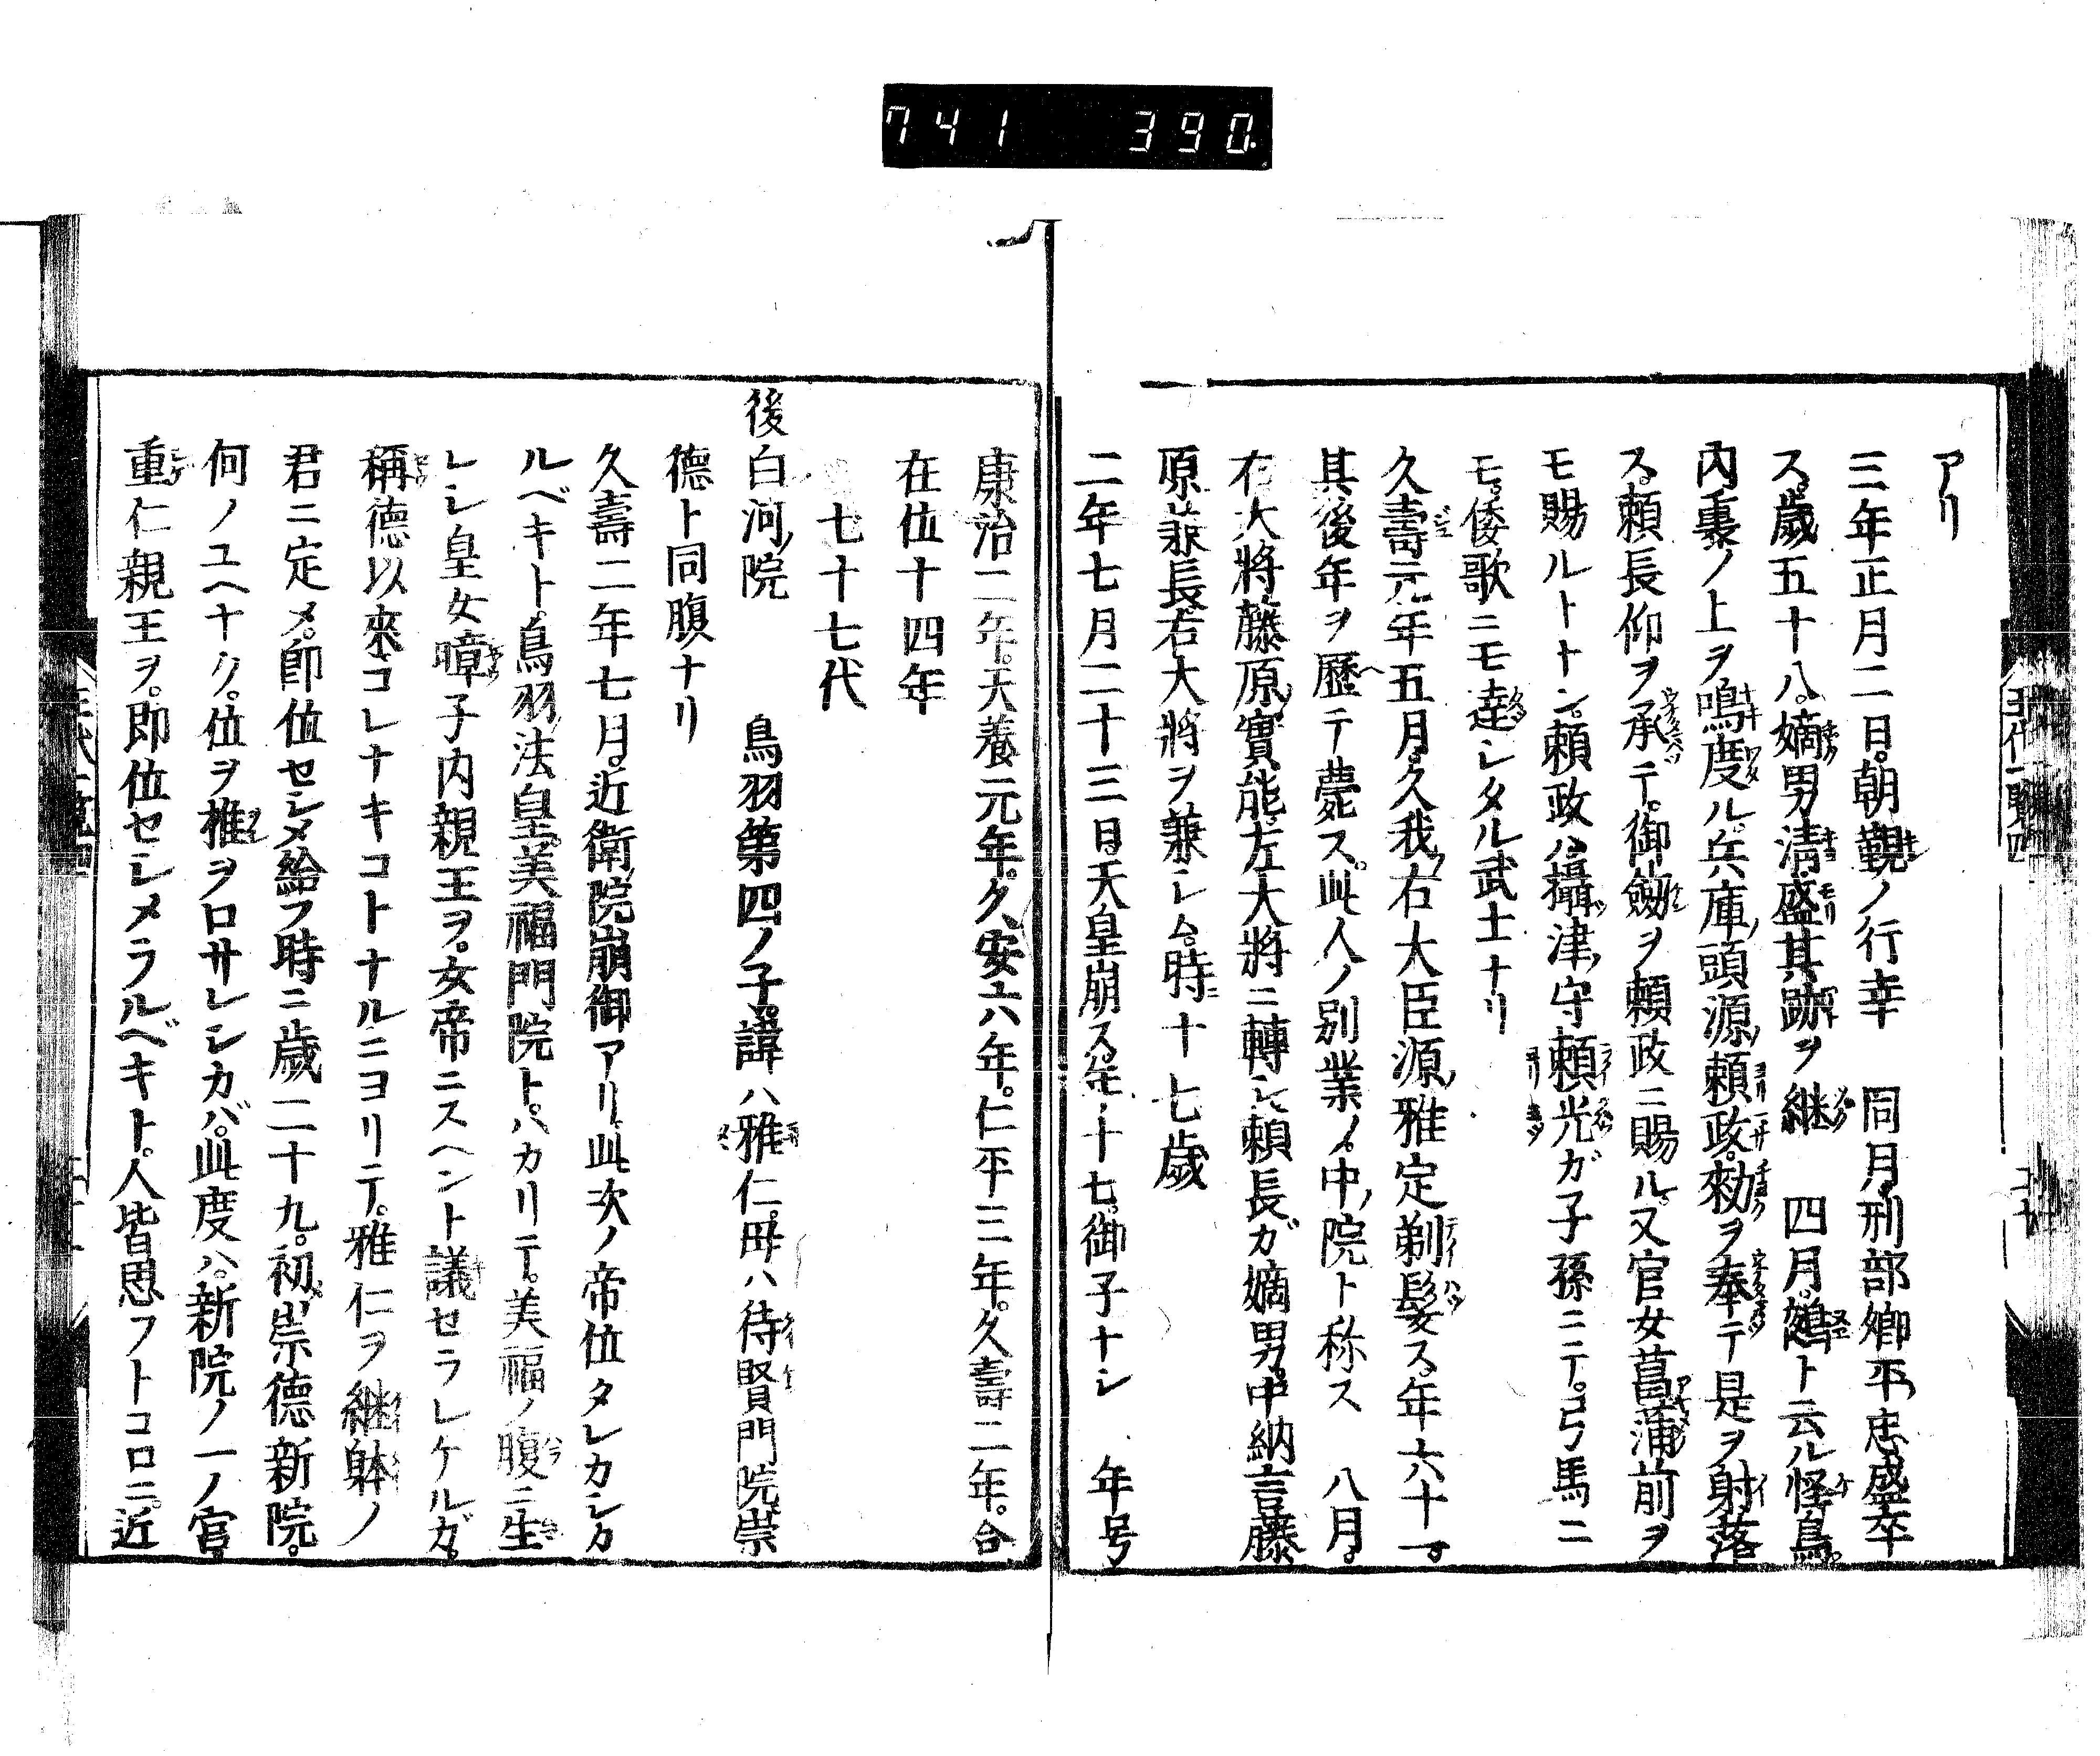 741 390
アリ
三年正月二日。朝覲ノ行幸　同月。刑部卿平忠盛卒
ス。歲五十八。嫡男清盛其跡ヲ継　四月。鵼ト云ル怪鳥。
內裏ノ上ヲ鳴度ル。兵庫頭源頼政。勅ヲ奉テ是ヲ射落
ス。頼長仰ヲ承テ。御劔ヲ頼政ニ賜ル。又官女菖蒲前ヲ
モ賜ルトトン。頼政ハ攝津守頼光ガ子孫ニテ。弓馬ニ
モ。倭歌ニモ達シタル武士ナリ
久壽元年五月。久我右大臣源雅定剃髮ス。年六十一。
其後年ヲ歷テ薨ス。此人ノ別業ノ。中院ト称ス　八月。
右大將藤原實能。左大將ニ轉シ。頼長ガ嫡男。中納言藤
原兼長。右大將ヲ兼シム。時ニ十七歲
二年七月二十三日。天皇崩ス。年十七。御子ナシ　年号
康治二年。天養元年。久安六年。仁平三年。久壽二年。合
在位十四年
七十七代
後白河院　鳥羽第四ノ子。諱ハ雅仁。母ハ待賢門院。崇
德ト同腹ナリ
久壽二年七月。近衛院崩御アリ。此次ノ帝位タレカシカ
ルベキト。鳥羽法皇。美福門院ト。ハカリテ。美福ノ腹ニ生
レシ皇女暲子內親王ヲ。女帝ニスヘント議セラレケルガ。
稱德以來コレナキコトナルニヨリテ。雅仁ヲ継躰ノ
君ニ定メ。卽位セシメ給フ時ニ歲二十九。初崇德新院。
何ノユヘナク。位ヲ推ヲロサレシカバ。此度ハ新院ノ一ノ宮。
重仁親王ヲ。即位セシメラルベキト。人皆思フトコロニ。近